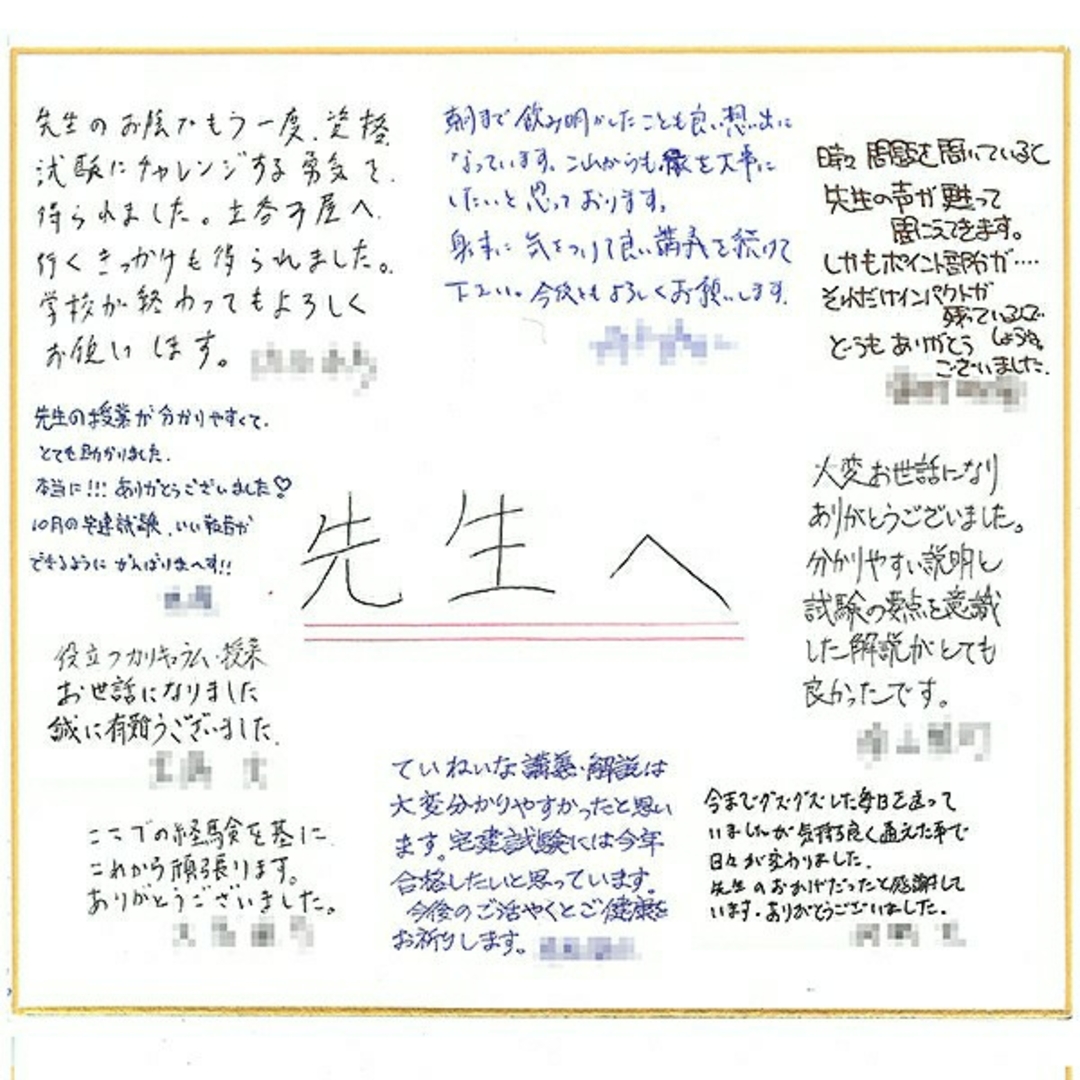 先生のお陰でもう一度、資格
試験にチャレンジする勇気を
得られました。土谷子屋へ
行くきっかけも得られました。
学校が終わってもよろしく
お願いします。
朝まで飲み明かしたことも良い想い出に
なっています。これからも縁を大事に
したいと思っております。
身体に気をつけて良い講義を続けて
下さい。今後ともよろしくお願いします。
時々問題を聞いていると
先生の声が甦って
聞こえてきます。
しかもポイント部分が‥‥
それだけインパクトが
残っているんで
しょうね。
どうもありがとう
ございました。
先生の授業が分かりやすくて、
とても助かりました。
本当に!!!ありがとうございました♡
10月の宅建試験、いい報告が
できるようにがんばりまーす!!
先生へ
大変お世話になり
ありがとうございました。
分かりやすい説明と
試験の要点を意識
した解説がとても
良かったです。
役立つカリキュラム・授業
お世話になりました
誠に有難うございました。
ここでの経験を基に
これから頑張ります。
ありがとうございました。
ていねいな講義・解説は
大変分かりやすかったと思い
ます。宅建試験には今年
合格したいと思っています。
今後のご活やくとご健康を
お祈りします。
今までグズグズした毎日を送って
いましたが気持ち良く通えた事で
日々が変わりました。
先生のおかげだったと感謝して
います。ありがとうございました。